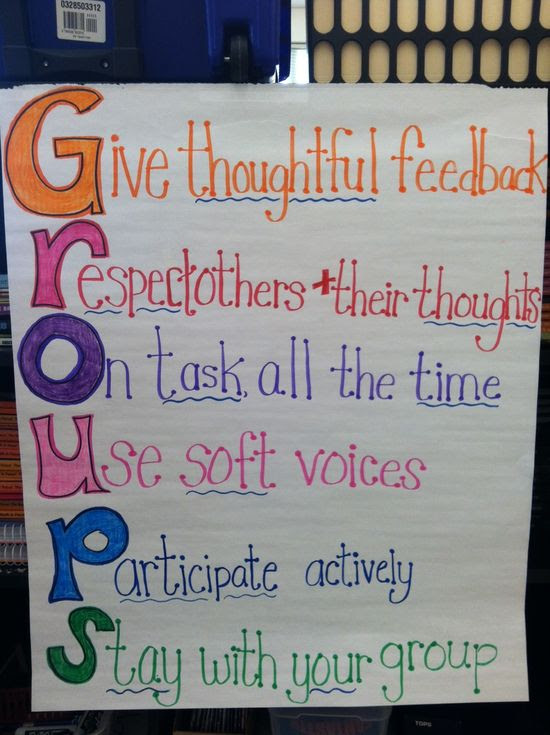 0328503312
Give thoughtful feedback
respect others + their thoughts
On task, all the time
Use soft voices
Participate actively
Stay with your group
TOPS